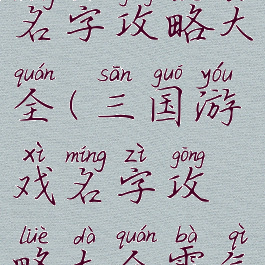 名字攻略大
quán sān guó yóu
全(三国游
xì míng zì gōng
戏名字攻
lüè dà quán bà qì
略大全霸气